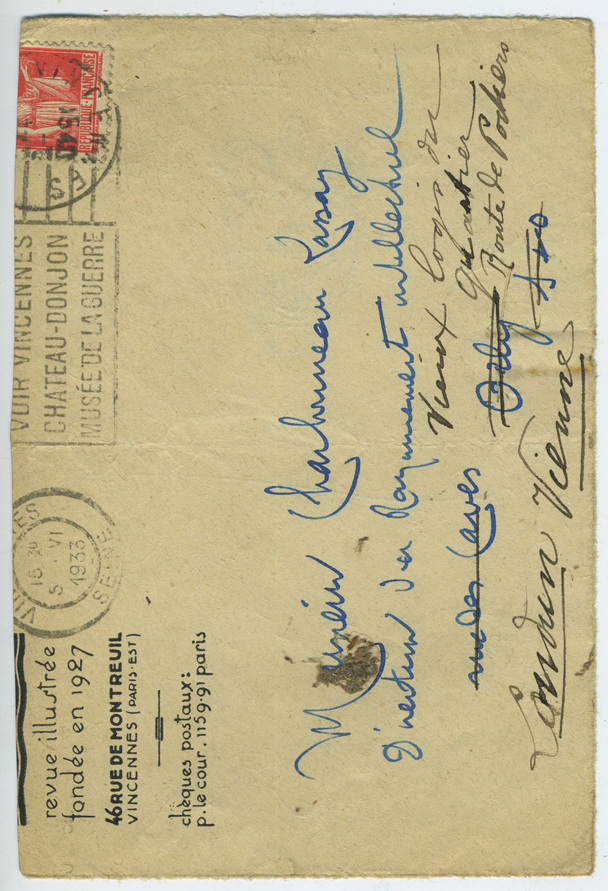 revue illustrée
fondée en 1927
46 RUE DE MONTREUIL
VINCENNES (PARIS-EST)
chèques postaux:
p. le cour. 1159-91 paris
VIN ES
15 30
5 VI
1933
SEINE
VOIR VINCENNES
CHATEAU-DONJON
MUSÉE DE LA GUERRE
RÉPUBLIQUE FRANÇAISE
Monsieur Charbonneau Lassay
Directeur du Rayonnement intellectuel
Vieux logis du
Quartier
rue des Caves
Route de Poitiers
Loudun Vienne